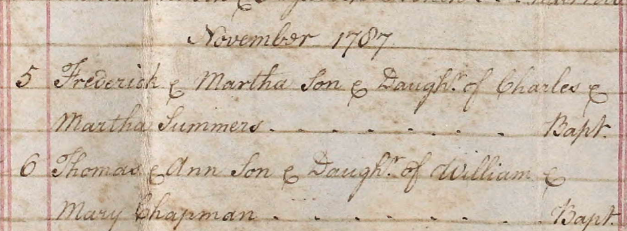 November 1787
5 Frederick & Martha Son & Daughr. of Charles &
Martha Summers. . . . . . . . . Bapt.
6 Thomas & Ann Son & Daughr. of William &
Mary Chapman . . . . . . . . Bapt.